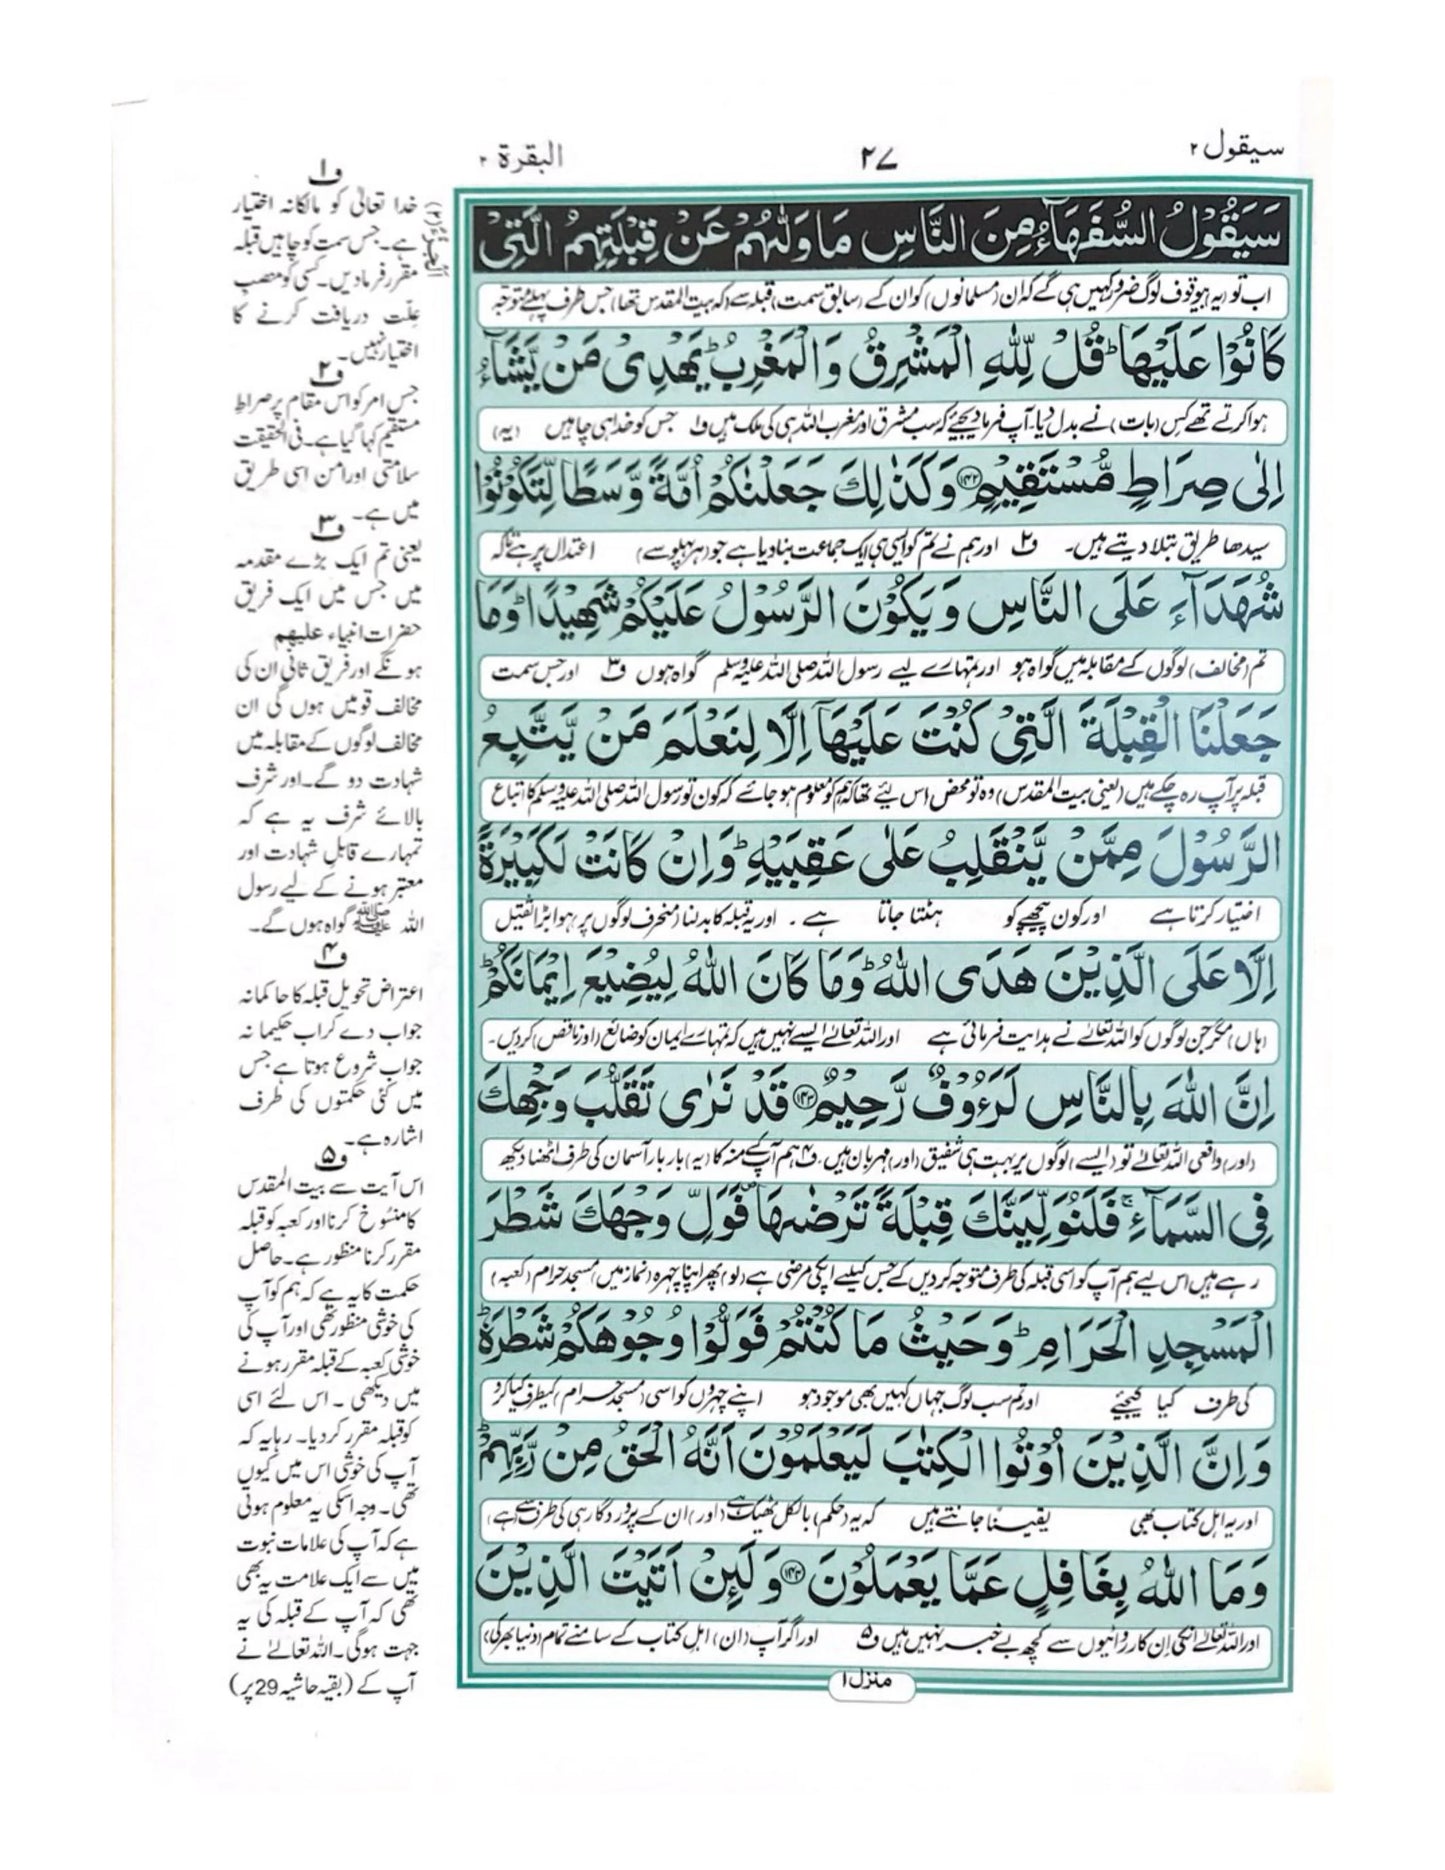 سیقول ۲
۲۷
البقرة ۲
سَيَقُوْلُ السُّفَهَآءُ مِنَ النَّاسِ مَا وَلّٰىهُمْ عَنْ قِبْلَتِهِمُ الَّتِيْ
اب تو (یہ) بیوقوف لوگ ضرور کہیں ہی گے کہ ان (مسلمانوں) کو ان کے (سابق سمت) قبلہ سے (کہ بیت المقدس تھا) جس طرف پہلے متوجہ
كَانُوْا عَلَيْهَا ؕ قُلْ لِّلّٰهِ الْمَشْرِقُ وَالْمَغْرِبُ ؕ يَهْدِيْ مَنْ يَّشَآءُ
ہوا کرتے تھے کس (بات) نے بدل دیا۔ آپ فرما دیجئے کہ سب مشرق اور مغرب اللہ ہی کی ملک ہیں ف۱ جس کو خدا ہی چاہیں (یہ)
اِلٰى صِرَاطٍ مُّسْتَقِيْمٍ ﴿۱۴۲﴾ وَكَذٰلِكَ جَعَلْنٰكُمْ اُمَّةً وَّسَطًا لِّتَكُوْنُوْا
سیدھا طریق بتلا دیتے ہیں۔ ف۲ اور ہم نے تم کو ایسی ہی ایک جماعت بنا دیا ہے جو (ہر پہلو سے) اعتدال پر ہے تاکہ
شُهَدَآءَ عَلَى النَّاسِ وَيَكُوْنَ الرَّسُوْلُ عَلَيْكُمْ شَهِيْدًا ؕ وَمَا
تم (مخالف) لوگوں کے مقابلہ میں گواہ ہو اور تمہارے لیے رسول اللہ صلی اللہ علیہ وسلم گواہ ہوں ف۳ اور جس سمت
جَعَلْنَا الْقِبْلَةَ الَّتِيْ كُنْتَ عَلَيْهَآ اِلَّا لِنَعْلَمَ مَنْ يَّتَّبِعُ
قبلہ پر آپ رہ چکے ہیں (یعنی بیت المقدس) وہ تو محض اس لیے تھا کہ ہم کو معلوم ہو جائے کہ کون تو رسول اللہ صلی اللہ علیہ وسلم کا اتباع
الرَّسُوْلَ مِمَّنْ يَّنْقَلِبُ عَلٰى عَقِبَيْهِ ؕ وَاِنْ كَانَتْ لَكَبِيْرَةً
اختیار کرتا ہے اور کون پیچھے کو ہٹتا جاتا ہے ۔ اور یہ قبلہ کا بدلنا (منحرف لوگوں پر) ہوا بڑا ثقیل
اِلَّا عَلَى الَّذِيْنَ هَدَى اللّٰهُ ؕ وَمَا كَانَ اللّٰهُ لِيُضِيْعَ اِيْمَانَكُمْ ؕ
(ہاں) مگر جن لوگوں کو اللہ تعالے نے ہدایت فرمائی ہے اور اللہ تعالے ایسے نہیں ہیں کہ تمہارے ایمان کو ضائع (اور ناقص) کر دیں۔
اِنَّ اللّٰهَ بِالنَّاسِ لَرَءُوْفٌ رَّحِيْمٌ ﴿۱۴۳﴾ قَدْ نَرٰى تَقَلُّبَ وَجْهِكَ
(اور) واقعی اللہ تعالے تو (ایسے) لوگوں پر بہت ہی شفیق (اور) مہربان ہیں۔ ف۴ ہم آپ کے منہ کا (یہ) بار بار آسمان کی طرف اٹھنا دیکھ
فِي السَّمَآءِ ۚ فَلَنُوَلِّيَنَّكَ قِبْلَةً تَرْضٰىهَا ۪ فَوَلِّ وَجْهَكَ شَطْرَ
رہے ہیں اس لیے ہم آپ کو اسی قبلہ کی طرف متوجہ کر دیں گے جس کیلیے آپکی مرضی ہے (لو) پھر اپنا چہرہ (نماز میں) مسجد حرام (کعبہ)
الْمَسْجِدِ الْحَرَامِ ؕ وَحَيْثُ مَا كُنْتُمْ فَوَلُّوْا وُجُوْهَكُمْ شَطْرَهٗ ؕ
کی طرف کیا کیجئے اور تم سب لوگ جہاں کہیں بھی موجود ہو اپنے چہروں کو اسی (مسجد حرام) کیطرف کیا کرو
وَاِنَّ الَّذِيْنَ اُوْتُوا الْكِتٰبَ لَيَعْلَمُوْنَ اَنَّهُ الْحَقُّ مِنْ رَّبِّهِمْ ؕ
اور یہ اہل کتاب بھی یقینًا جانتے ہیں کہ یہ (حکم) بالکل ٹھیک ہے (اور) ان کے پروردگار ہی کی طرف سے (ہے)
وَمَا اللّٰهُ بِغَافِلٍ عَمَّا يَعْمَلُوْنَ ﴿۱۴۴﴾ وَلَئِنْ اَتَيْتَ الَّذِيْنَ
اور اللہ تعالے انکی ان کارروائیوں سے کچھ بے خبر نہیں ہیں ف۵ اور اگر آپ (ان) اہل کتاب کے سامنے تمام (دنیا بھر کی)
منزل ۱
الجزء (۲)
ف۱
خدا تعالٰی کو مالکانہ اختیار
ہے۔ جس سمت کو چاہیں قبلہ
مقرر فرما دیں۔ کسی کو منصب
علّت دریافت کرنے کا
اختیار نہیں۔
ف۲
جس امر کو اس مقام پر صراطِ
مستقیم کہا گیا ہے۔ فی الحقیقت
سلامتی اور امن اسی طریق
میں ہے۔
ف۳
یعنی تم ایک بڑے مقدمہ
میں جس میں ایک فریق
حضرات انبیاء علیھم
ہونگے اور فریق ثانی ان کی
مخالف قومیں ہوں گی ان
مخالف لوگوں کے مقابلہ میں
شہادت دو گے۔ اور شرف
بالائے شرف یہ ہے کہ
تمہارے قابلِ شہادت اور
معتبر ہونے کے لیے رسول
اللہ ﷺ گواہ ہوں گے۔
ف۴
اعتراض تحویل قبلہ کا حاکمانہ
جواب دے کر اب حکیمانہ
جواب شروع ہوتا ہے جس
میں کئی حکمتوں کی طرف
اشارہ ہے۔
ف۵
اس آیت سے بیت المقدس
کا منسوخ کرنا اور کعبہ کو قبلہ
مقرر کرنا منظور ہے۔ حاصل
حکمت کا یہ ہے کہ ہم کو آپ
کی خوشی منظور تھی اور آپ کی
خوشی کعبہ کے قبلہ مقرر ہونے
میں دیکھی ۔ اس لئے اسی
کو قبلہ مقرر کر دیا۔ رہا یہ کہ
آپ کی خوشی اس میں کیوں
تھی۔ وجہ اسکی یہ معلوم ہوتی
ہے کہ آپ کی علامات نبوت
میں سے ایک علامت یہ بھی
تھی کہ آپ کے قبلہ کی یہ
جہت ہوگی۔ اللہ تعالےٰ نے
آپ کے (بقیہ حاشیہ 29 پر)